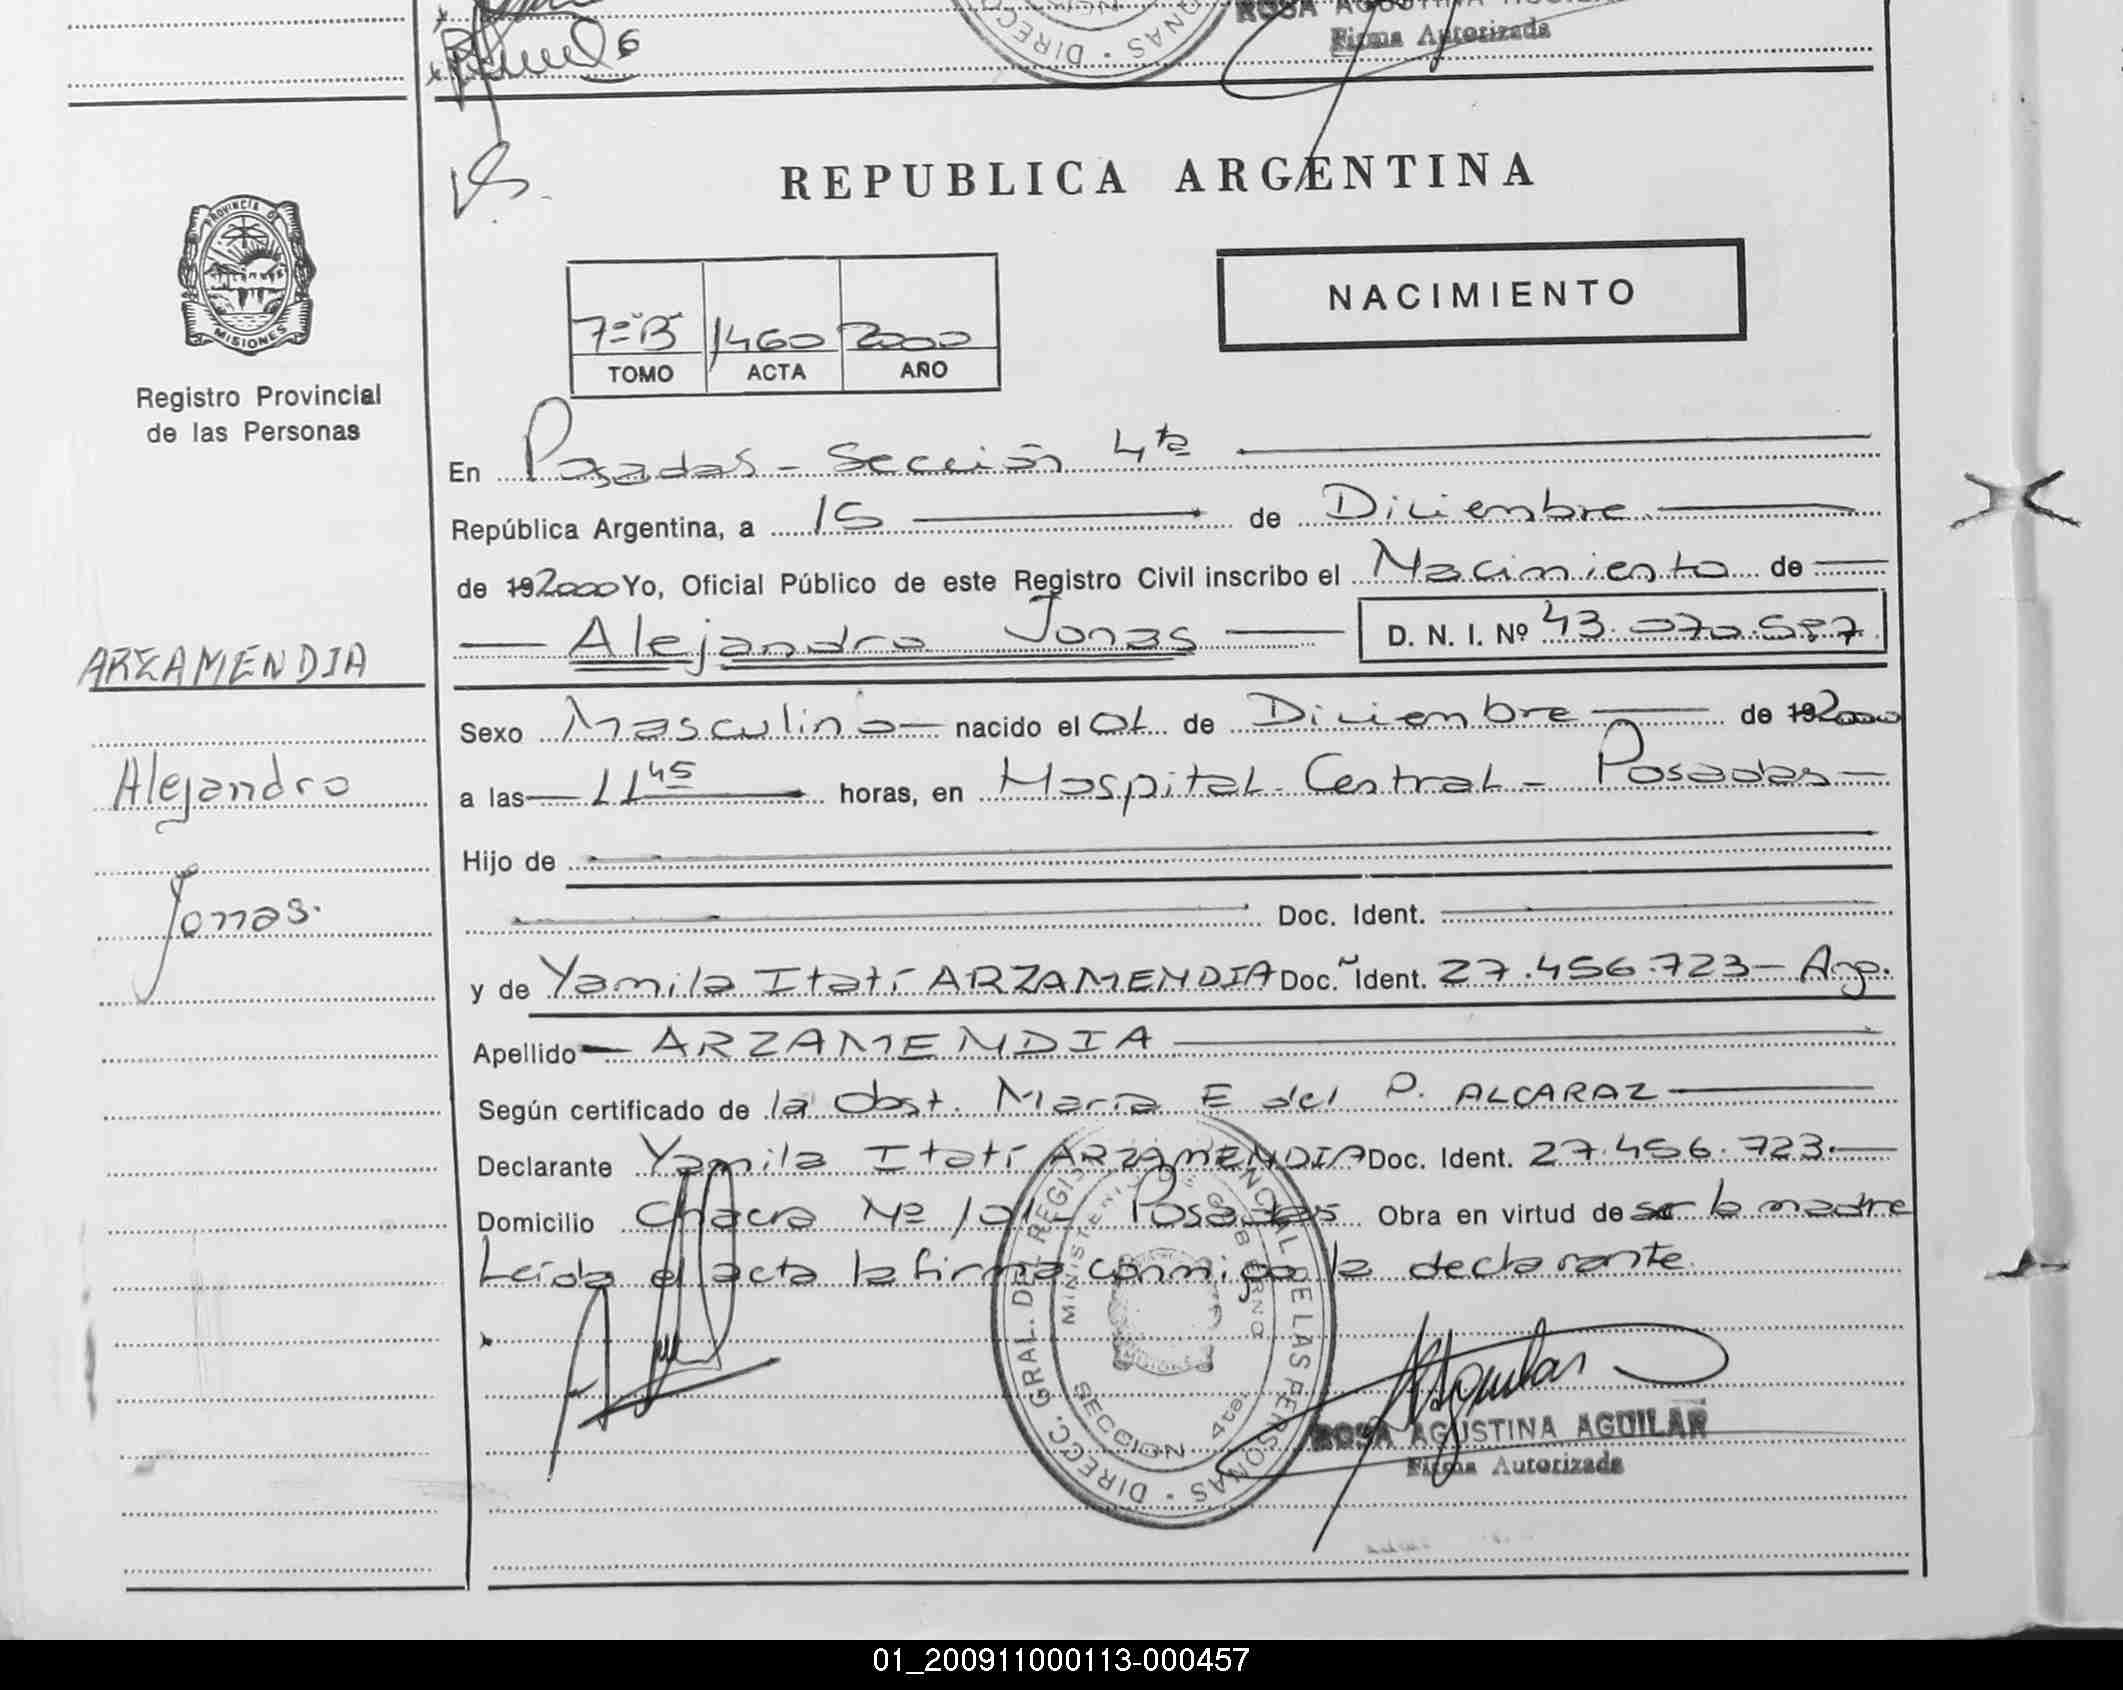 ROSA AGUSTINA AGUILAR
Firma Autorizada
REPUBLICA ARGENTINA
PROVINCIA DE
MISIONES
Registro Provincial
de las Personas
7º "B" 1460 2000
TOMO ACTA AÑO
NACIMIENTO
En Posadas - Sección 4ta
República Argentina, a 15 de Diciembre
de 192000 Yo, Oficial Público de este Registro Civil inscribo el Nacimiento de
Alejandro Jonas D. N. I. Nº 43.070.587
ARZAMENDIA
Alejandro
Jonas.
Sexo Masculino nacido el 01 de Diciembre de 192000
a las 11 45 horas, en Hospital Central - Posadas
Hijo de
Doc. Ident.
y de Yamila Itatí ARZAMENDIA Doc. Ident. 27.456.723 - Arg.
Apellido ARZAMENDIA
Según certificado de la Obst. María E del P. ALCARAZ
Declarante Yamila Itatí ARZAMENDIA Doc. Ident. 27.456.723.
Domicilio Chacra Nº 101 - Posadas Obra en virtud de ser la madre
Leída el acta la firma conmigo la declarante
DIRECC. GRAL. DEL REGISTRO PROVINCIAL DE LAS PERSONAS
MINISTERIO DE GOBIERNO
SECCION 4ta.
ROSA AGUSTINA AGUILAR
Firma Autorizada
01_200911000113-000457